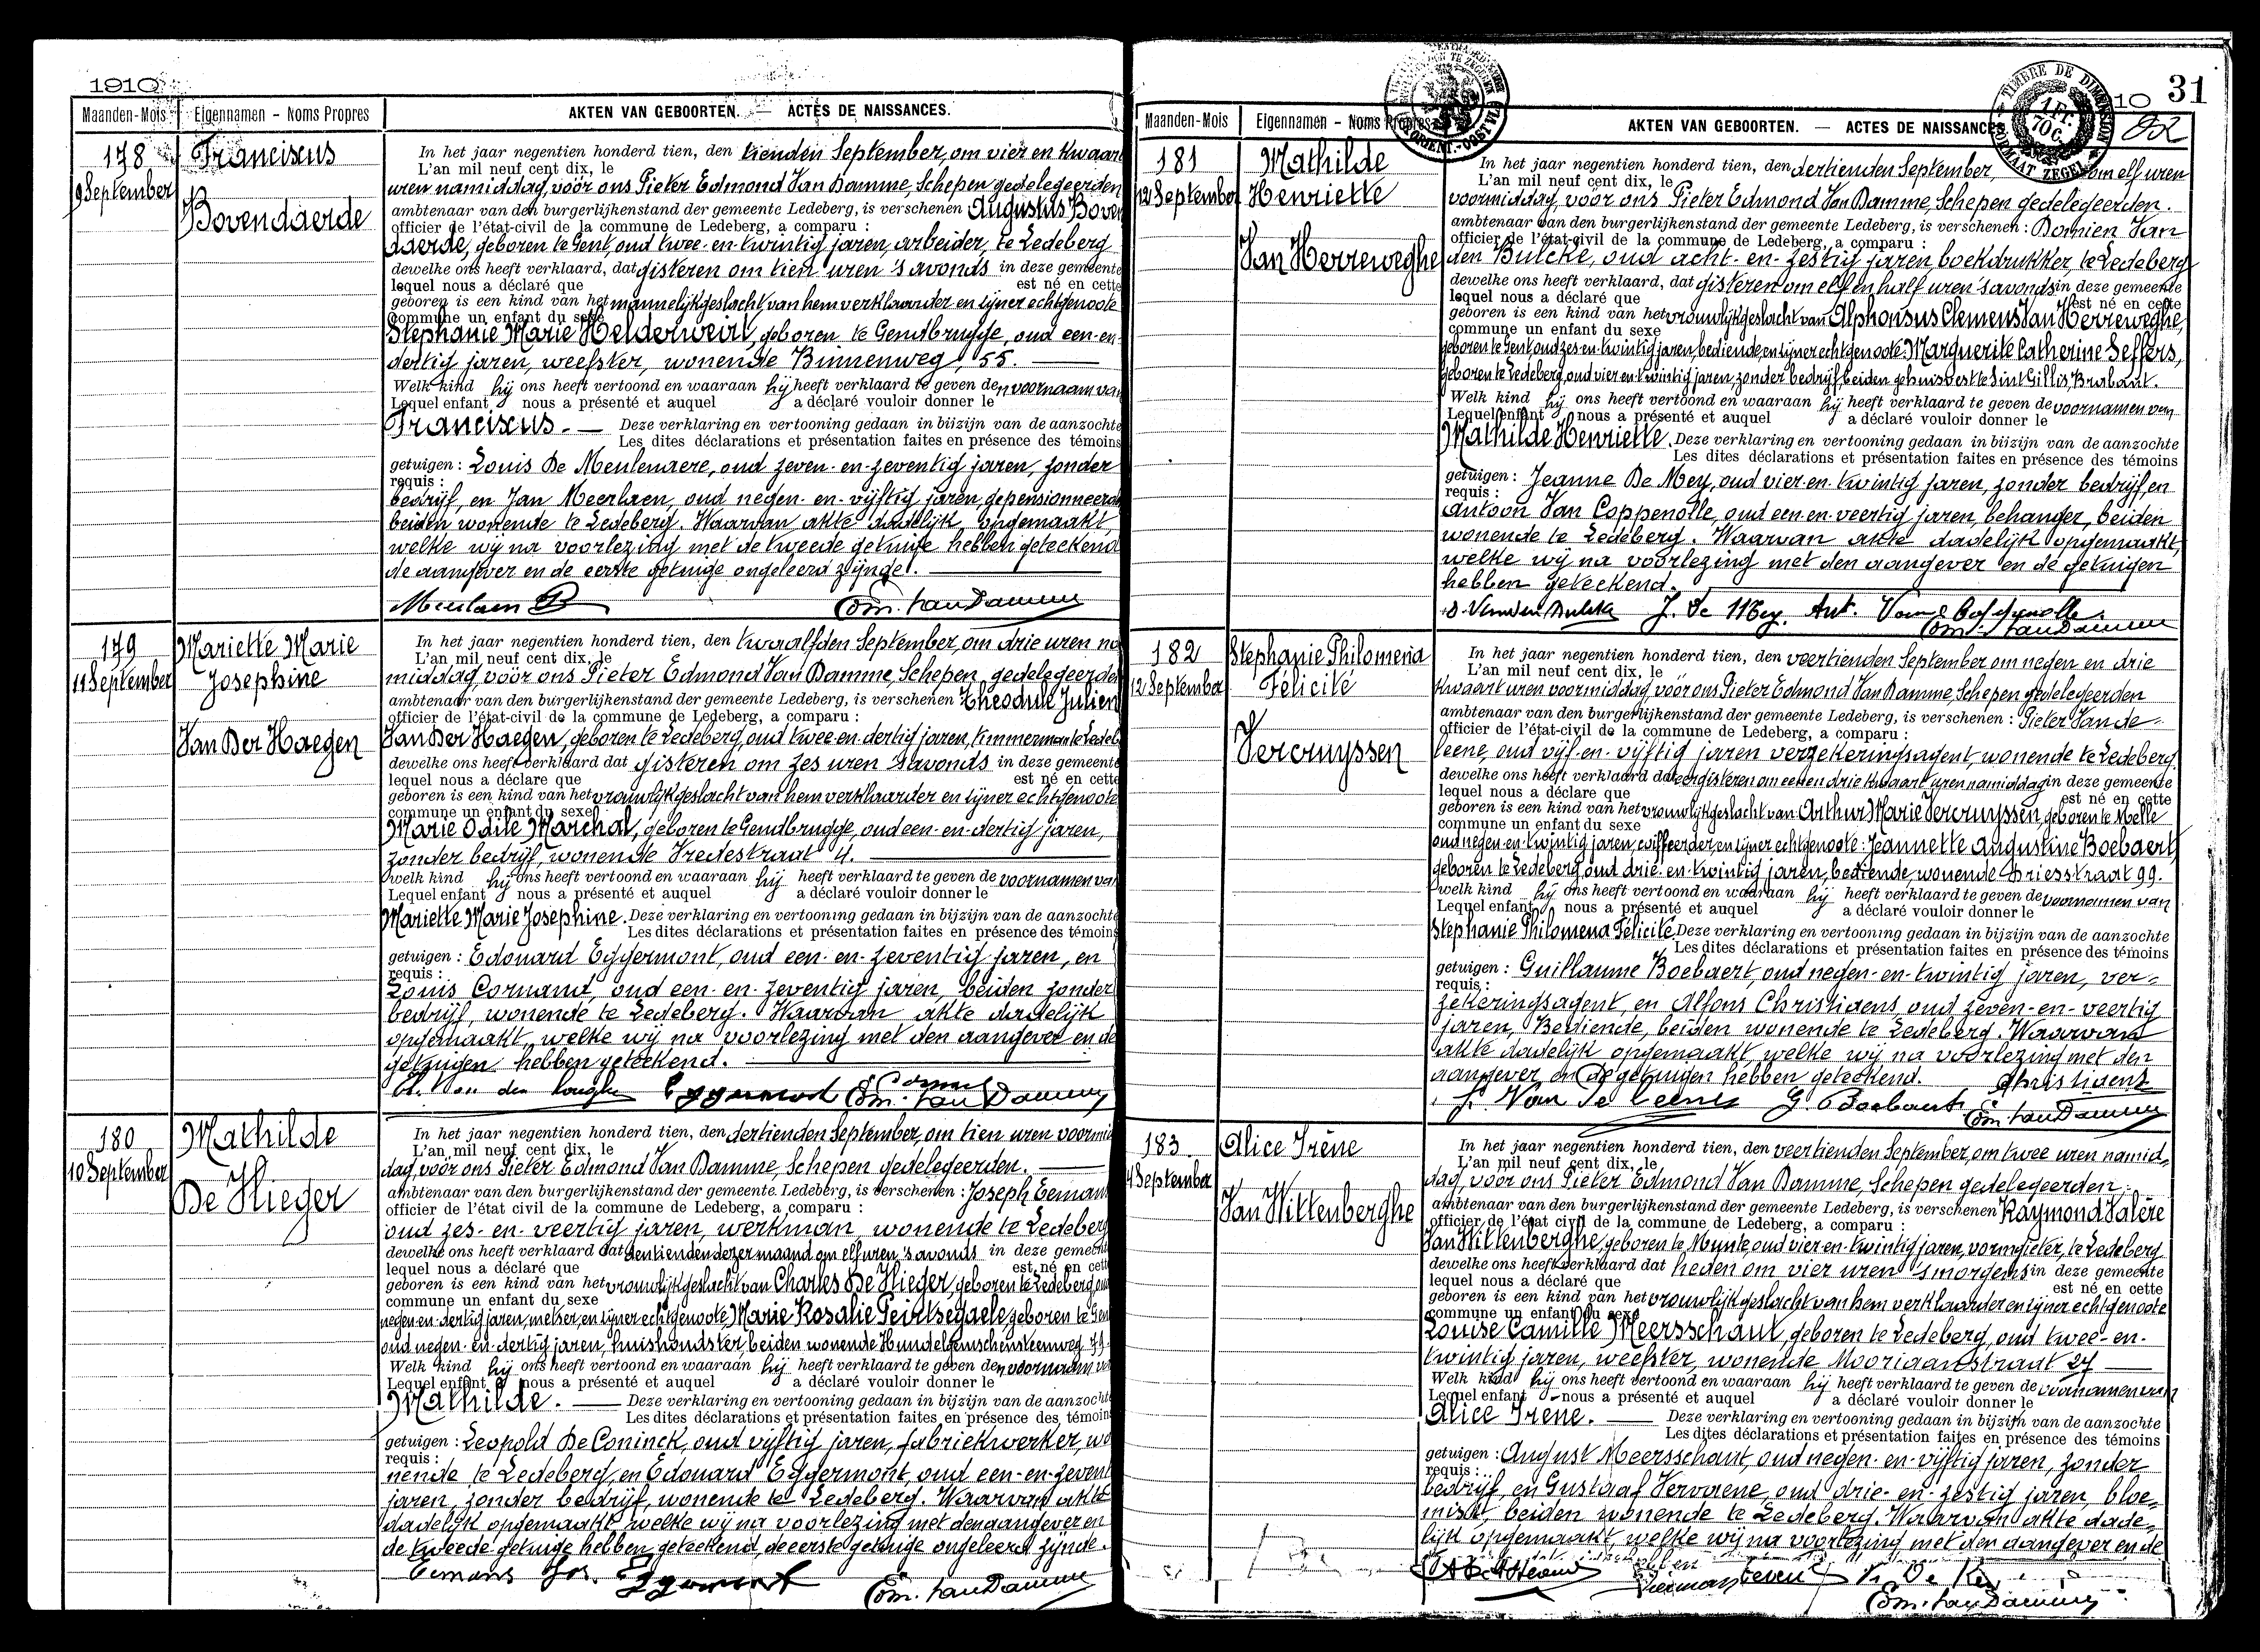 1910
Maanden-Mois Eigennamen - Noms Propres AKTEN VAN GEBOORTEN. — ACTES DE NAISSANCES.
178 Franciscus
9 September
Bovendaerde
In het jaar negentien honderd tien, den tienden September, om vier en kwaart
L'an mil neuf cent dix, le
uren namiddag, vóór ons Pieter Edmond Van Damme, Schepen gedelegeerden
ambtenaar van den burgerlijkenstand der gemeente Ledeberg, is verschenen Augustus Boven
officier de l'état-civil de la commune de Ledeberg, a comparu :
daerde, geboren te Gent, oud twee-en-twintig jaren, arbeider, te Ledeberg
dewelke ons heeft verklaard, dat gisteren om tien uren 's avonds in deze gemeente
lequel nous a déclaré que est né en cette
geboren is een kind van het mannelijk geslacht, van hem verklaarder en zijner echtgenoote
commune un enfant du sexe
Stephanie Marie Helderweirt, geboren te Gendbrugge, oud een-en-
dertig jaren, weefster, wonende Binnenweg, 55.
Welk kind hij ons heeft vertoond en waaraan hij heeft verklaard te geven den voornaam van
Lequel enfant nous a présenté et auquel a déclaré vouloir donner le
Franciscus. — Deze verklaring en vertooning gedaan in bijzijn van de aanzochte
Les dites déclarations et présentation faites en présence des témoins
getuigen : Louis De Meulenaere, oud zeven-en-zeventig jaren, zonder
requis :
bedrijf, en Jan Meerlaen, oud negen-en-vijftig jaren, gepensionneerd
beiden wonende te Ledeberg. Waarvan akte dadelijk opgemaakt,
welke wij na voorlezing met de tweede getuige hebben geteekend
de aangever en de eerste getuige ongeleerd zijnde.
Edm. Van Damme
179 Mariette Marie
11 September Josephine
Van Der Haegen
In het jaar negentien honderd tien, den twaalfden September, om drie uren na
L'an mil neuf cent dix, le
middag, vóór ons Pieter Edmond Van Damme, Schepen gedelegeerden
ambtenaar van den burgerlijkenstand der gemeente Ledeberg, is verschenen Theodule Julien
officier de l'état-civil de la commune de Ledeberg, a comparu :
Van Der Haegen, geboren te Ledeberg, oud twee-en-dertig jaren, timmerman te Ledeb
dewelke ons heeft verklaard dat gisteren om zes uren 's avonds in deze gemeente
lequel nous a déclare que est né en cette
geboren is een kind van het vrouwlijk geslacht van hem verklaarder en zijner echtgenoote
commune un enfant du sexe
Marie Odile Marchal, geboren te Gendbrugge, oud een-en-dertig jaren,
zonder bedrijf, wonende Vredestraat 4.
welk kind hij ons heeft vertoond en waaraan hij heeft verklaard te geven de voornamen van
Lequel enfant nous a présenté et auquel a déclaré vouloir donner le
Mariette Marie Josephine. Deze verklaring en vertooning gedaan in bijzijn van de aanzochte
Les dites déclarations et présentation faites en présence des témoins
getuigen : Edouard Eggermont, oud een-en-zeventig jaren, en
requis :
Louis Cornand, oud een-en-zeventig jaren, beiden zonder
bedrijf, wonende te Ledeberg. Waarvan akte dadelijk
opgemaakt, welke wij na voorlezing met den aangever en de
getuigen hebben geteekend.
Eggermont Edm. Van Damme
180 Mathilde
10 September
De Vlieger
In het jaar negentien honderd tien, den dertienden September, om tien uren voormid
L'an mil neuf cent dix, le
dag, vóór ons Pieter Edmond Van Damme, Schepen gedelegeerden.
ambtenaar van den burgerlijkenstand der gemeente Ledeberg, is verschenen : Joseph Eemans
officier de l'état civil de la commune de Ledeberg, a comparu :
oud zes-en-veertig jaren, werkman, wonende te Ledeberg
dewelke ons heeft verklaard dat den tienden dezer maand om elf uren 's avonds in deze gemeente
lequel nous a déclaré que est né en cette
geboren is een kind van het vrouwlijk geslacht van Charles De Vlieger, geboren te Ledeberg oud
commune un enfant du sexe
negen-en-dertig jaren, metser, en zijner echtgenoote Marie Rosalie Peirtsegaele, geboren te Gent
oud negen-en-dertig jaren, huishoudster, beiden wonende Hundelgemschensteenweg
Welk kind hij ons heeft vertoond en waaraan hij heeft verklaard te geven den voornaam van
Lequel enfant nous a présenté et auquel a déclaré vouloir donner le
Mathilde. — Deze verklaring en vertooning gedaan in bijzijn van de aanzochte
Les dites déclarations et présentation faites en présence des témoins
getuigen : Leopold De Coninck, oud vijftig jaren, fabriekwerker, wo
requis :
nende te Ledeberg, en Edouard Eggermont, oud een-en-zevent
jaren, zonder bedrijf, wonende te Ledeberg. Waarvan akte
dadelijk opgemaakt, welke wij na voorlezing met den aangever en
de tweede getuige hebben geteekend, de eerste getuige ongeleerd zijnde.
Eemans Jos. Eggermont Edm. Van Damme
31
10 82
TIMBRE DE DIMENSION FORMAAT ZEGEL 1 Fr. 70 c.
Maanden-Mois Eigennamen - Noms Propres AKTEN VAN GEBOORTEN. — ACTES DE NAISSANCE
181 Mathilde
12 September Henriette
Van Herreweghe
In het jaar negentien honderd tien, den dertienden September, om elf uren
L'an mil neuf cent dix, le
voormiddag, vóór ons Pieter Edmond Van Damme, Schepen gedelegeerden.
ambtenaar van den burgerlijkenstand der gemeente Ledeberg, is verschenen : Damien Van
officier de l'état-civil de la commune de Ledeberg, a comparu :
den Bulcke, oud acht-en-zestig jaren, boekdrukker, te Ledeberg
dewelke ons heeft verklaard, dat gisteren om elf en half uren 's avonds in deze gemeente
lequel nous a déclaré que est né en cette
geboren is een kind van het vrouwlijk geslacht van Alphonsus Clemens Van Herreweghe,
commune un enfant du sexe
geboren te Gent, oud zes-en-twintig jaren, bediende, en zijner echtgenoote: Marguerite Catherine Seffers,
geboren te Ledeberg, oud vier-en-twintig jaren, zonder bedrijf, beiden gehuisvest te Sint Gillis, Brabant.
Welk kind hij ons heeft vertoond en waaraan hij heeft verklaard te geven de voornamen van
Lequel enfant nous a présenté et auquel a déclaré vouloir donner le
Mathilde Henriette. Deze verklaring en vertooning gedaan in bijzijn van de aanzochte
Les dites déclarations et présentation faites en présence des témoins
getuigen : Jeanne De Mey, oud vier-en-twintig jaren, zonder bedrijf, en
requis :
Antoon Van Coppenolle, oud een-en-veertig jaren, behanger, beiden
wonende te Ledeberg. Waarvan akte dadelijk opgemaakt,
welke wij na voorlezing met den aangever en de getuigen
hebben geteekend.
D. Vanden Bulcke J. De Mey. Ant. Van Coppenolle.
Edm. Van Damme
182 Stephanie Philomena
12 September Félicité
Vercruyssen
In het jaar negentien honderd tien, den veertienden September om negen en drie
L'an mil neuf cent dix, le
kwaart uren voormiddag, vóór ons Pieter Edmond Van Damme, Schepen gedelegeerden
ambtenaar van den burgerlijkenstand der gemeente Ledeberg, is verschenen : Pieter Van de
officier de l'état-civil de la commune de Ledeberg, a comparu :
leene, oud vijf-en-vijftig jaren verzekeringsagent, wonende te Ledeberg.
dewelke ons heeft verklaard dat eergisteren om een en drie kwaart uren namiddag in deze gemeente
lequel nous a déclaré que est né en cette
geboren is een kind van het vrouwlijk geslacht van: Arthur Marie Vercruyssen, geboren te Melle
commune un enfant du sexe
oud negen-en-twintig jaren, coiffeerder, en zijner echtgenoote: Jeannette Augustine Boebaert,
geboren te Ledeberg, oud drie-en-twintig jaren, bediende, wonende Driesstraat 99.
welk kind hij ons heeft vertoond en waaraan hij heeft verklaard te geven de voornamen van
Lequel enfant nous a présenté et auquel a déclaré vouloir donner le
Stephanie Philomena Félicité. Deze verklaring en vertooning gedaan in bijzijn van de aanzochte
Les dites déclarations et présentation faites en présence des témoins
getuigen : Guillaume Boebaert, oud negen-en-twintig jaren, ver-
requis :
zekeringsagent, en Alfons Christiaens, oud zeven-en-veertig
jaren, Bediende, beiden wonende te Ledeberg. Waarvan
akte dadelijk opgemaakt, welke wij na voorlezing met den
aangever en de getuigen hebben geteekend. Christiaens
G. Boebaert Edm. Van Damme
183 Alice Irène
September
Van Wittenberghe
In het jaar negentien honderd tien, den veertienden September, om twee uren namid-
L'an mil neuf cent dix, le
dag, vóór ons Pieter Edmond Van Damme, Schepen gedelegeerden.
ambtenaar van den burgerlijkenstand der gemeente Ledeberg, is verschenen Raymond Valère
officier de l'état civil de la commune de Ledeberg, a comparu :
Van Wittenberghe, geboren te Munte, oud vier-en-twintig jaren, vormgieter, te Ledeberg
dewelke ons heeft verklaard dat heden om vier uren 's morgens in deze gemeente
lequel nous a déclaré que est né en cette
geboren is een kind van het vrouwlijk geslacht van hem verklaarder en zijner echtgenoote
commune un enfant du sexe
Louise Camille Meersschaut, geboren te Ledeberg, oud twee-en-
twintig jaren, weefster, wonende Mooriaanstraat 27
Welk kind hij ons heeft vertoond en waaraan hij heeft verklaard te geven de voornamen van
Lequel enfant nous a présenté et auquel a déclaré vouloir donner le
Alice Irène. — Deze verklaring en vertooning gedaan in bijzijn van de aanzochte
Les dites déclarations et présentation faites en présence des témoins
getuigen : August Meersschaut, oud negen-en-vijftig jaren, zonder
requis :
bedrijf, en Gustaaf Vervaene, oud drie-en-zestig jaren, bloe-
mist, beiden wonende te Ledeberg. Waarvan akte dade-
lijk opgemaakt, welke wij na voorlezing met den aangever en de
Edm. Van Damme